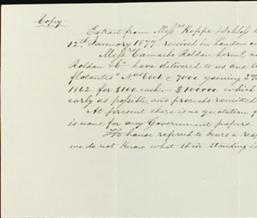 Copy
Extract from Messrs Koppe & Schloss
12th January 1877 received in London
Messrs Camacho Roldan have
Roldan & Co have delivered to us one
flotantes" No 6006 c 7000 gaining 2%
1862 for $100 each = $100000 which
early as possible, and proceeds remitted
At present there is no quotation
is none for any Government papers.
The house referred to bears a
we do not know what their standing is